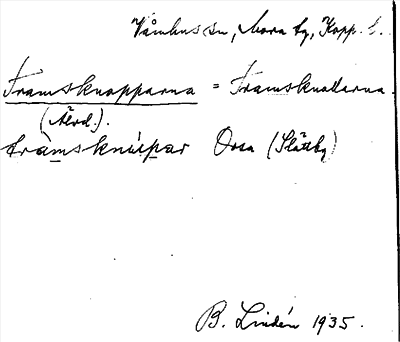 Våmhus sn, Mora tg, Kopp. l.
Framsknopparna = Framsknollarna.
(Älvd.).
fràmsknúpar Orsa (Slättby)
B. Lindén 1935.